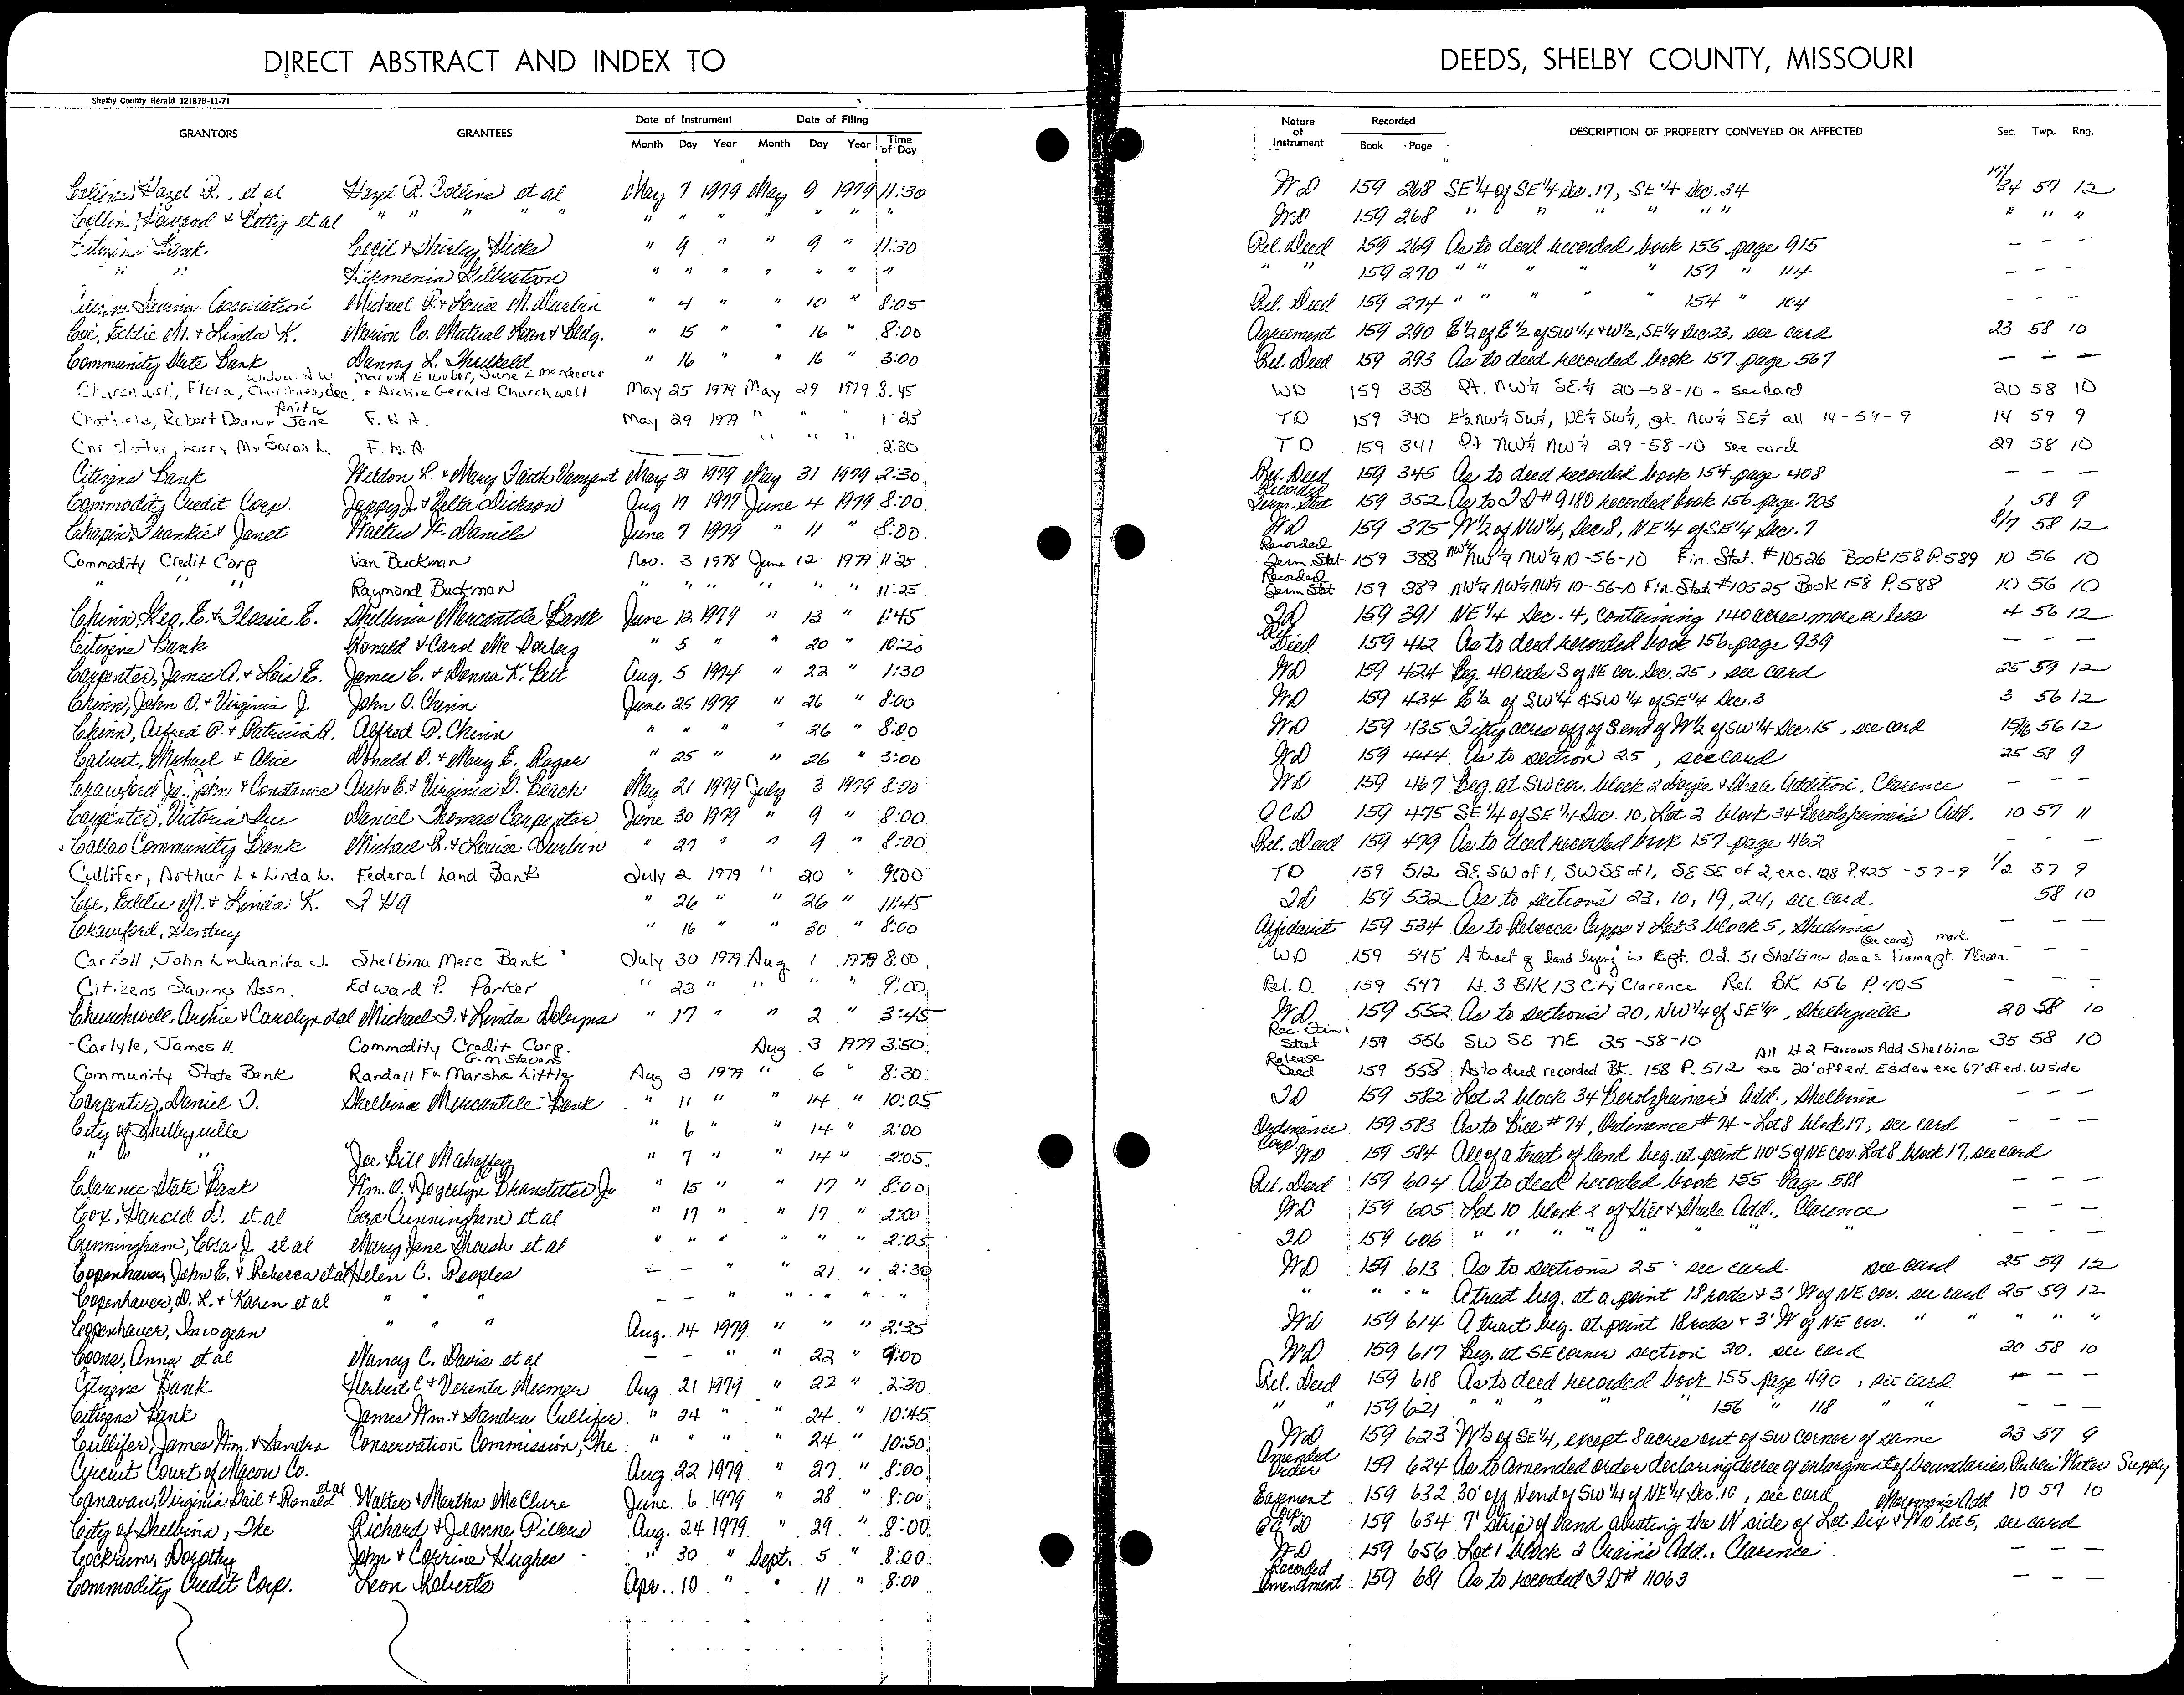 DIRECT ABSTRACT AND INDEX TO DEEDS, SHELBY COUNTY, MISSOURI
Shelby County Herald 12187B-11-71
GRANTORS GRANTEES Date of Instrument Date of Filing Nature of Instrument Recorded DESCRIPTION OF PROPERTY CONVEYED OR AFFECTED Sec. Twp. Rng.
Month Day Year Month Day Year Time of Day Book Page
Collins, Hazel R., et al Hazel R. Collins et al May 7 1979 May 9 1979 11:30 WD 159 268 SE 1/4 of SE 1/4 Sec. 17, SE 1/4 Sec. 34 17/34 57 12
Collins, & Betty et al " " " " " " " " " " " WD 159 268 " " " " " " " " "
Citizens Bank. Cecil & Shirley Hicks " 9 " " 9 " 11:30 Rel. Deed 159 269 As to deed recorded book 155 page 915 - - -
" " " " " " " " " " " 159 270 " " " " " 157 " 114 - - -
Savings Association Michael R. & Louise M. Durbin " 4 " " 10 " 8:05 Rel. Deed 159 274 " " " " " 154 " 104 - - -
Coe, Eddie M. & Linda K. Marion Co. Mutual Loan & Bldg. " 15 " " 16 " 8:00 Agreement 159 290 E 1/2 of E 1/2 of SW 1/4 & W 1/2, SE 1/4 Sec. 23, see card 23 58 10
Community State Bank Danny L. Threlkeld " 16 " " 16 " 3:00 Rel. Deed 159 293 As to deed recorded book 157 page 567 - - -
widow A.W. Marvin E Weber, June E McKeever
Churchwell, Flora, Churchwell, dec. & Archie Gerald Churchwell May 25 1979 May 29 1979 8:45 WD 159 338 Pt. NW 1/4 SE 1/4 20-58-10 - see card. 20 58 10
Anita
Robert Dean & Jane F.H.A. May 29 1979 " " " 1:25 TD 159 340 E 1/2 NW 1/4 SW 1/4, NE 1/4 SW 1/4, pt. NW 1/4 SE 1/4 all 14-59-9 14 59 9
Christoffer, Larry M & Sarah L. F.H.A " " " 2:30 TD 159 341 Pt NW 1/4 NW 1/4 29-58-10 see card 29 58 10
Citizens Bank Weldon R. & Mary Faith May 31 1979 May 31 1979 2:30 Rel. Deed 159 345 As to deed recorded book 154 page 408 - - -
Commodity Credit Corp. & Dickson Aug 17 1977 June 4 1979 8:00 Recorded Term. Stat 159 352 As to FD # 9180 recorded book 156 page 703 1 58 9
Chapin, Frankie & Janet Walter W. Daniels June 7 1979 " 11 " 8:00 WD 159 375 W 1/2 of NW 1/4, Sec 8, NE 1/4 of SE 1/4 Sec. 7 8/7 58 12
Commodity Credit Corp Van Buckman Nov. 3 1978 June 12 1979 11:25 Recorded Term. Stat 159 388 NW 1/4 NW 1/4 NW 1/4 10-56-10 Fin. Stat. #10526 Book 158 P. 589 10 56 10
" " " Raymond Buckman " " " " " " 11:25 Recorded Term Stat 159 389 NW 1/4 NW 1/4 NW 1/4 10-56-10 Fin. Stat. #10525 Book 158 P. 588 10 56 10
Chinn, Geo. E. & Flossie E. Shelbina Mercantile Bank June 12 1979 " 13 " 1:45 TD 159 391 NE 1/4 Sec. 4, containing 140 acres more or less 4 56 12
Citizens Bank Ronald & Carol " 5 " " 20 " 10:20 Rel. Deed 159 412 As to deed recorded book 156, page 939 - - -
Carpenter, James A. & Lois E. James C. & Donna K. Aug. 5 1974 " 22 " 1:30 WD 159 424 Beg. 40 rods S of NE cor. Sec. 25, see card 25 59 12
Chinn, John O. & Virginia J. John O. Chinn June 25 1979 " 26 " 8:00 WD 159 434 E 1/2 of SW 1/4 & SW 1/4 of SE 1/4 Sec. 3 3 56 12
Chinn, Alfred P. & Patricia A. Alfred P. Chinn " " " " 26 " 8:00 WD 159 435 Fifty acres off of S end of W 1/2 of SW 1/4 Sec. 15, see card 15/16 56 12
Calvert, Michael & Alice Donald D. & Mary E. Rager " 25 " " 26 " 3:00 WD 159 444 As to section 25, see card 25 58 9
Crawford Jr., John & Constance Arch E. & Virginia D. Beach May 21 1979 July 3 1979 8:00 WD 159 467 Beg. at SW cor. block 2 & Shale Addition, Clarence - - -
Carpenter, Victoria Sue Daniel Thomas Carpenter June 30 1979 " 9 " 8:00 QCD 159 475 SE 1/4 of SE 1/4 Sec. 10, Lot 2 block 34 Berolzheimer's Add. 10 57 11
Callao Community Bank Michael R. & Louise Durbin " 27 " " 9 " 8:00 Rel. Deed 159 479 As to deed recorded book 157 page 462 - - -
Cullifer, Arthur L & Linda L. Federal Land Bank July 2 1979 " 20 " 9:00 TD 159 512 SE SW of 1, SW SE of 1, SE SE of 2, exc. 128 P. 425 - 57-9 1/2 57 9
Coe, Eddie M. & Linda K. FHA " 26 " " 26 " 11:45 TD 159 532 As to sections 23, 10, 19, 24, see card. 58 10
Crawford, " 16 " " 30 " 8:00 Affidavit 159 534 As to Rebecca Capps & Lot 3 block 5, Shelbina - - -
(see card) mark.
Carroll, John L & Juanita J. Shelbina Merc Bank July 30 1979 Aug 1 1979 8:00 WD 159 545 A tract of land lying in Ept. O.L. 51 Shelbina
Citizens Savings Assn. Edward P. Parker " 23 " " " " 9:00 Rel. D. 159 547 Lt. 3 Blk 13 City Clarence Rel. BK 156 P. 405 - - -
Churchwell, Archie & Carolyn et al Michael J. & Linda " 17 " " 2 " 3:45 WD 159 552 As to sections 20, NW 1/4 of SE 1/4, Shelbyville 20 58 10
Carlyle, James H. Commodity Credit Corp. Aug 3 1979 3:50 Rec. Fin. Stat 159 556 SW SE NE 35-58-10 35 58 10
G.M Stevens All Lt 2 Farrows Add Shelbina
Community State Bank Randall F & Marsha Little Aug 3 1979 " 6 " 8:30 Release Deed 159 558 As to deed recorded Bk. 158 P. 512 exc 20' off ent. E side & exc 67' off ent. W side
Carpenter, Daniel T. Shelbina Mercantile Bank " 11 " " 14 " 10:05 TD 159 582 Lot 2 block 34 Berolzheimer's Add., Shelbina - - -
City of Shelbyville " 6 " " 14 " 2:00 Ordinance 159 583 As to Bill # 74, Ordinence # 74 - Lot 8 block 17, see card - - -
" " " Joe Bill Mahaffey " 7 " " 14 " 2:05 Corp WD 159 584 All of a tract of land beg. at point 110' S of NE cor. Lot 8 block 17, see card
Clarence State Bank Wm. O. & Joycelyn Branstetter Jr. " 15 " " 17 " 8:00 Rel. Deed 159 604 As to deed recorded book 155 Page 588 - - -
Cox, Harold D. et al Cora Cunningham et al " 17 " " 17 " 2:00 WD 159 605 Lot 10 block 2 of & Shale Add., Clarence - - -
Cunningham, Cora J. et al Mary Jane et al " " " " " " 2:05 TD 159 606 " " " " " " " - - -
Copenhaver, John E. & Rebecca et al Helen C. Peoples - - " " 21 " 2:30 WD 159 613 As to sections 25 - see card. see card 25 59 12
Copenhaver, D. L. & Karen et al " " " - - " " " " " " " " A tract beg. at a point 18 rods & 3' W of NE cor. see card 25 59 12
Copenhaver, Imogean " " " Aug. 14 1979 " " " 2:35 WD 159 614 A tract beg. at point 18 rods & 3' W of NE cor. " " " " "
Coons, Anna et al Nancy C. Davis et al - - " " 22 " 9:00 WD 159 617 Beg. at SE corner section 20. see card 20 58 10
Citizens Bank Herbert C & Verenta Mesmer Aug 21 1979 " 22 " 2:30 Rel. Deed 159 618 As to deed recorded book 155 page 490, see card - - -
Citizens Bank James Wm. & Sandra Cullifer " 24 " " 24 " 10:45 " " 159 621 " " " " 156 " 118 " " - - -
Cullifer, James Wm. & Sandra Conservation Commission, The " " " " 24 " 10:50 WD 159 623 W 1/2 of SE 1/4, except 8 acres out of SW corner of same 23 57 9
Circuit Court of Macon Co. Aug. 22 1979 " 27 " 8:00 Amended Order 159 624 As to amended order declaring decree of enlargment of boundaries, Public Water Supply
Canavan, Virginia Gail & Ronald et al Walter & Martha McClure June 6 1979 " 28 " 8:00 Easement 159 632 30' off N end of SW 1/4 of NE 1/4 Sec. 10, see card 10 57 10
City of Shelbina, The Richard & Jeanne Pillers Aug. 24 1979 " 29 " 8:00 Corp QCD 159 634 7' strip of land abutting the N side of Lot six & W 10 lot 5, Add see card
Cockrum, Dorothy John & Corrine Hughes " 30 " Sept. 5 " 8:00 WD 159 656 Lot 1 block 2 Crain's Add., Clarence. - - -
Commodity Credit Corp. Leon Roberts Apr. 10 " " 11 " 8:00 Recorded Amendment 159 681 As to recorded FD # 11063 - - -